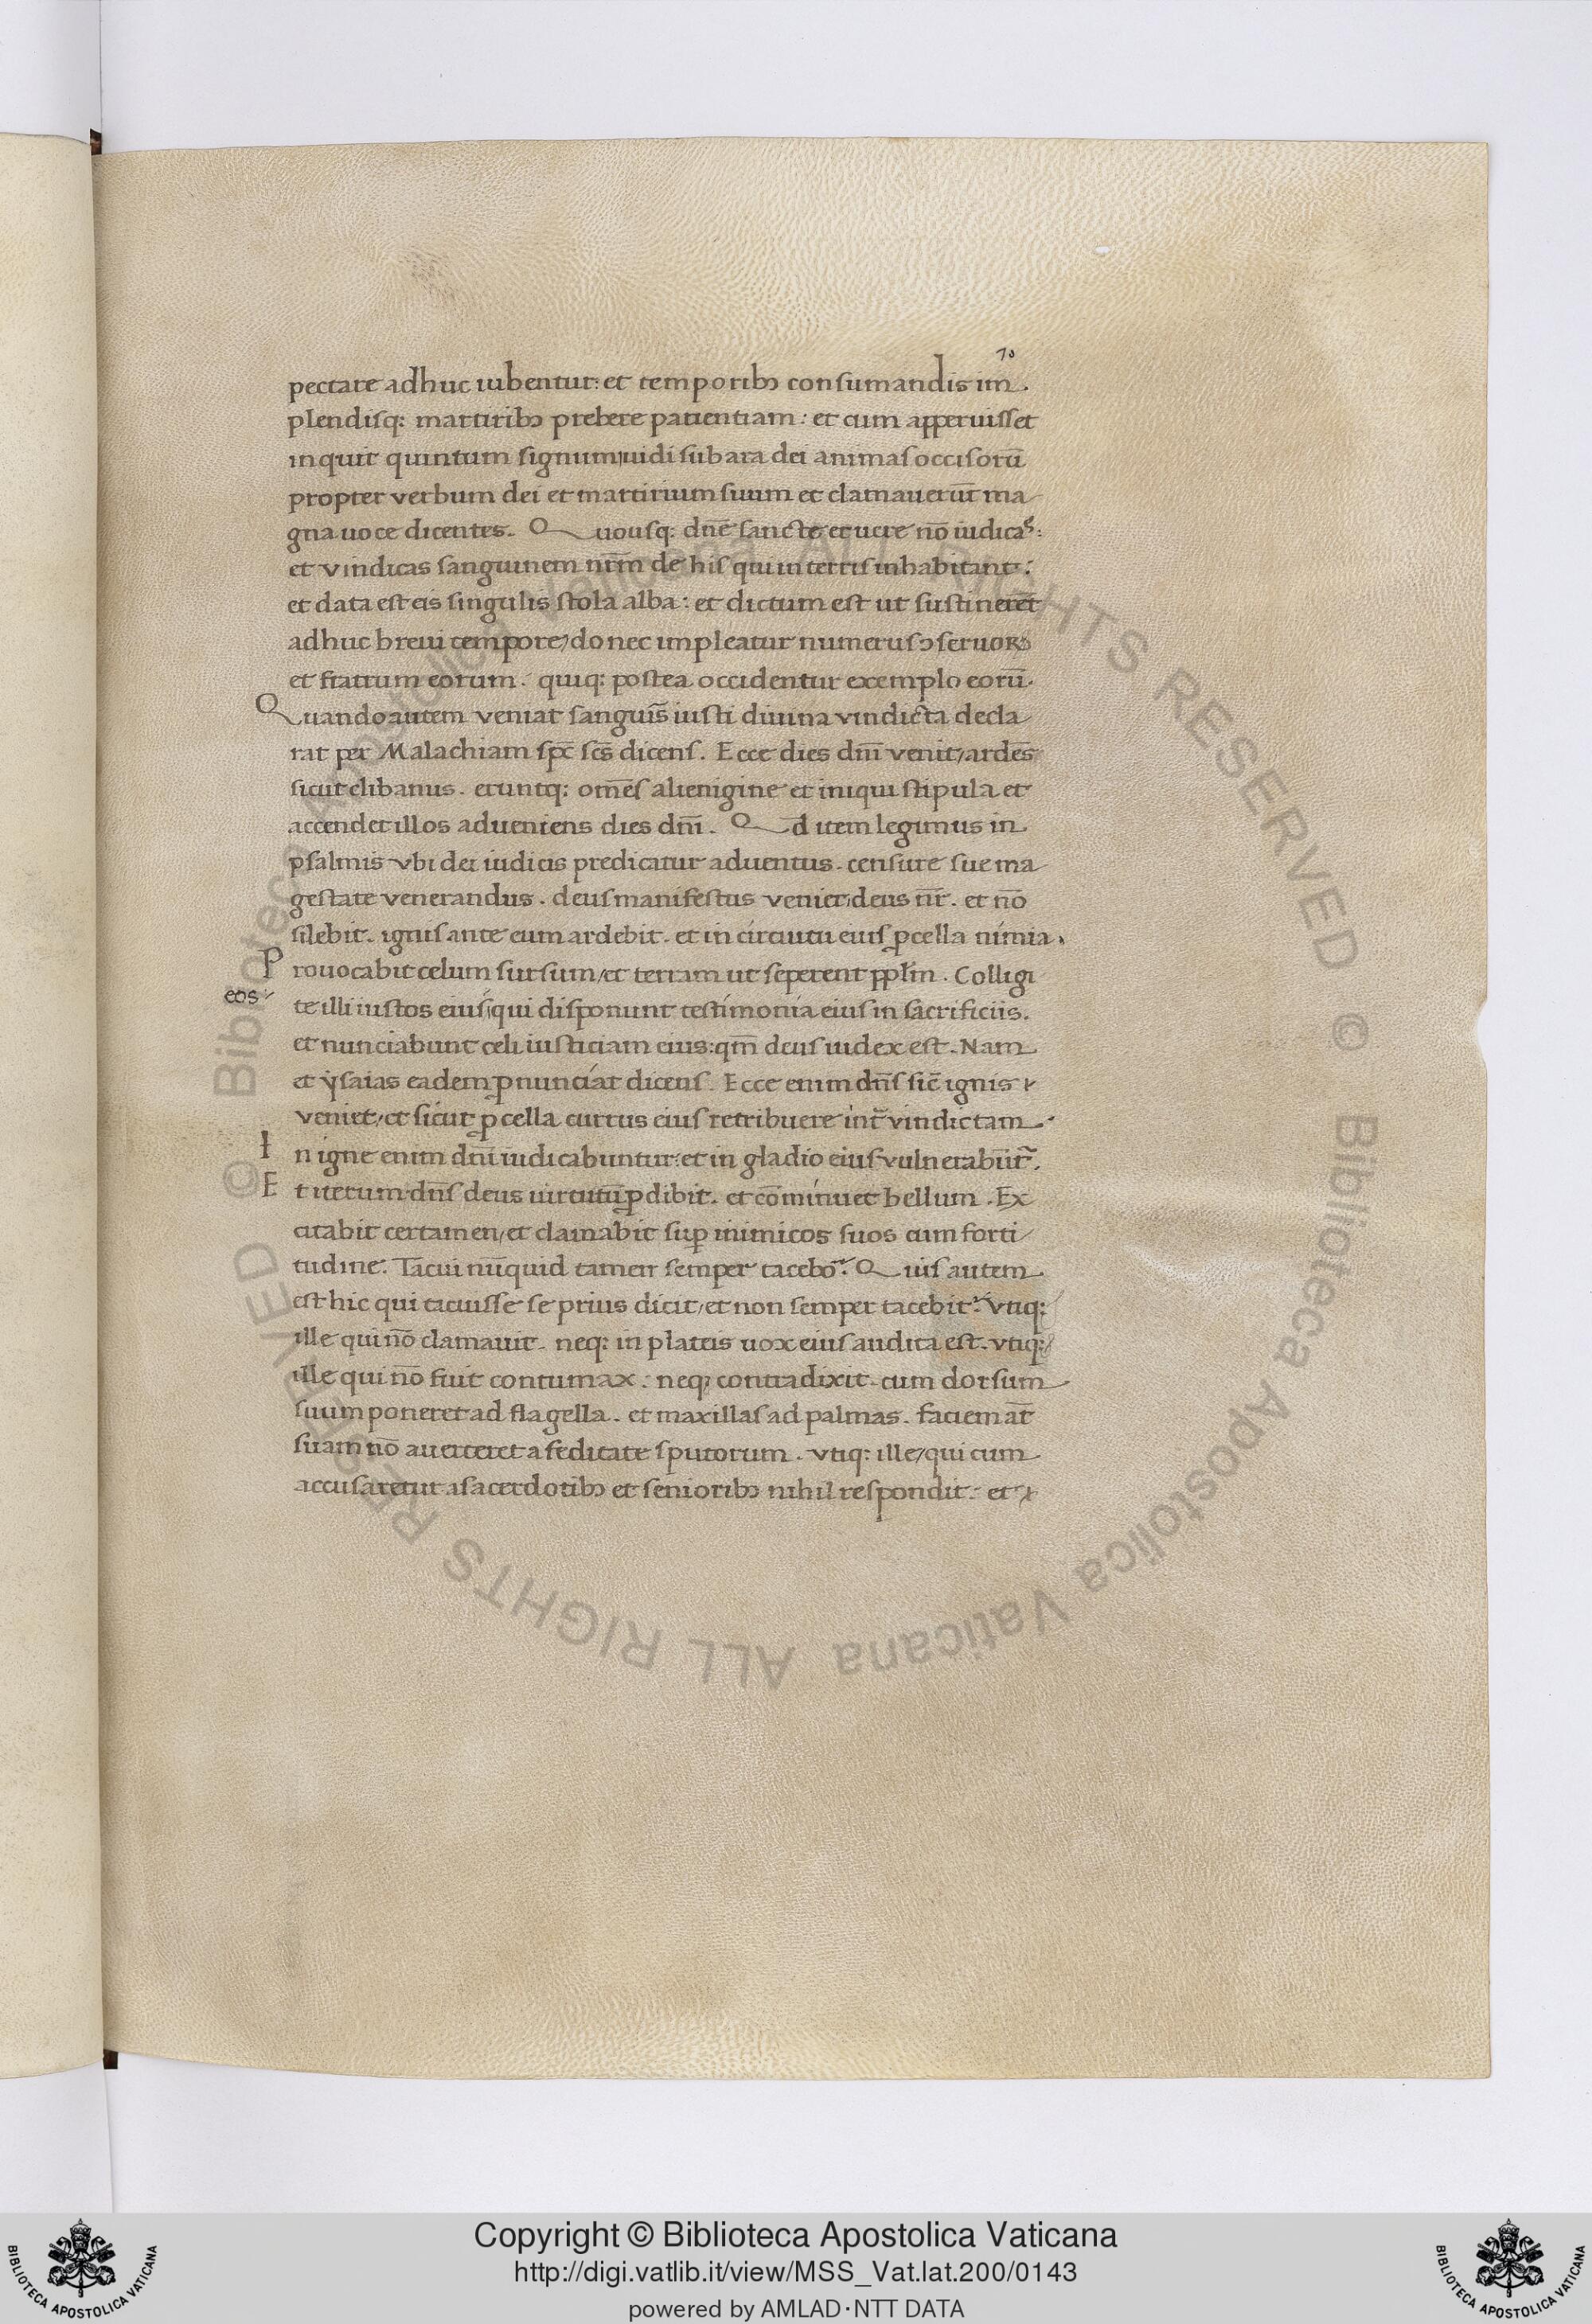 70
pectare adhuc iubentur: et temporibꝫ consumandis im
plendisq: martiribꝫ prebere patientiam: et cum apperuisset
inquit quintum signum, uidi sub ara dei animas occisorū
propter verbum dei et martirium suum et clamauerūt ma
gna uoce dicentes. Quousq: dn̄e sancte et uere nō iudicas:
et vindicas sanguinem nr̄m de his qui in terris inhabitant:
et data est eis singulis stola alba: et dictum est ut sustinerēt
adhuc breui tempore, donec impleatur numerus ↄseruoꝝ
et fratrum eorum. quiq: postea occidentur exemplo eorū.
Quando autem veniat sanguīs iusti diuina vindicta decla
rat per Malachiam sp̄c sc̄s dicens. Ecce dies dn̄i venit, ardēs
sicut clibanus. eruntq: om̄es alienigine et iniqui stipula et
accendet illos adueniens dies dn̄i. Qd̄ item legimus in
psalmis vbi dei iudicis predicatur aduentus. censure sue ma
gestate venerandus. deus manifestus veniet, deus nr̄. et nō
silebit. ignis ante eum ardebit. et in circuitu eius ꝓcella nimia.
Prouocabit celum sursum, et terram ut seperent pp̄lm. Colligi
eos
te illi iustos eius, qui disponunt testimonia eius in sacrificiis.
et nunciabunt celi iusticiam eius: qm̄ deus iudex est. Nam
et ysaias eadem ꝓnunciat dicens. Ecce enim dn̄s sic̄ ignis
veniet, et sicut ꝓcella currus eius retribuere in ir̄a vindictam.
In igne enim dn̄i iudicabuntur: et in gladio eius vulnerabūtr̄.
Et iterum dn̄s deus uirtutū ꝓdibit. et cōminuet bellum. Ex
citabit certamen, et clamabit suꝑ inimicos suos cum forti
tudine. Tacui nūquid tamen semper tacebo? Quis autem
est hic qui tacuisse se prius dicit, et non semper tacebit? Vtiq:
ille qui nō clamauit. neq: in plateis uox eius audita est. vtiq:
ille qui nō fuit contumax: neq; contradixit. cum dorsum
suum poneret ad flagella. et maxillas ad palmas. faciem at̄
suam nō auerteret a feditate sputorum. vtiq: ille, qui cum
accusaretur a sacerdotibꝫ et senioribꝫ nihil respondit: et
Copyright © Biblioteca Apostolica Vaticana
http://digi.vatlib.it/view/MSS_Vat.lat.200/0143
powered by AMLAD·NTT DATA
BIBLIOTECA APOSTOLICA VATICANA
BIBLIOTECA APOSTOLICA VATICANA
© Biblioteca Apostolica Vaticana ALL RIGHTS RESERVED
© Biblioteca Apostolica Vaticana ALL RIGHTS RESERVED